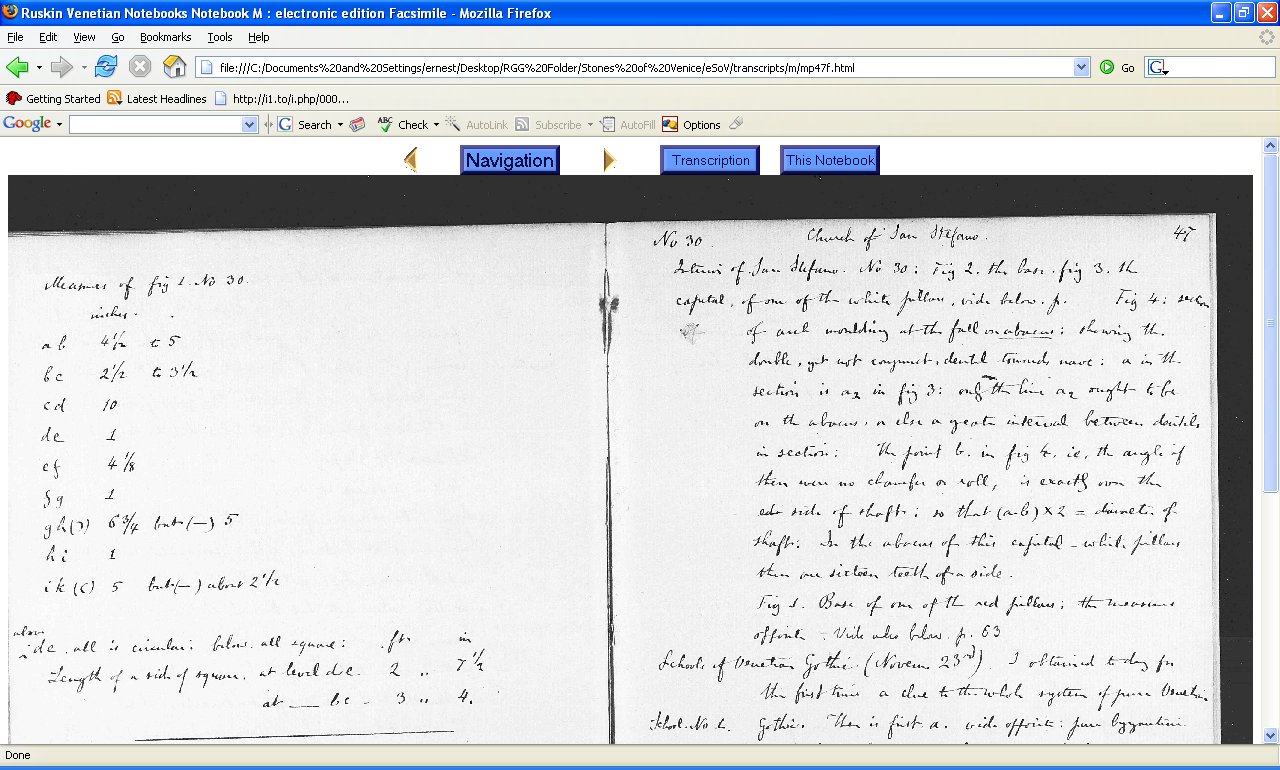 Ruskin Venetian Notebooks Notebook M : electronic edition Facsimile - Mozilla Firefox
File Edit View Go Bookmarks Tools Help
file:///C:/Documents%20and%20Settings/ernest/Desktop/RGG%20Folder/Stones%20of%20Venice/eSoV/transcripts/m/mp47f.html Go G
Getting Started Latest Headlines http://i1.to/i.php/000...
Google G Search ABC Check AutoLink Subscribe AutoFill Options
Navigation Transcription This Notebook
Measures of fig 1. No 30.
inches.
a b 4 1/2 to 5
b c 2 1/2 to 3 1/2
c d 10
d e 1
e f 4 1/8
f g 1
g h (?) 6 3/4 but (—) 5
h i 1
i k (c) 5 but (—) about 2 1/2
above
d e. all is circular: below. all square: ft. in
Length of a side of square. at level d e. 2 " 7 1/2
at — b c - 3 " 4.
No 30. Church of San Stefano. 47
Interior of San Stefano. No 30: Fig 2. the base. fig 3. the
capital, of one of the white pillars, vide below. p. Fig 4: section
of arch moulding at the fall on abacus: shewing the
double, yet not conjunct, dentil towards nave: a in the
section is a x in fig 3: only the line a x ought to be
on the abacus. or else a greater interval between dentils
in section: The point b. in fig 4. ie. the angle if
there were no chamfer or roll, is exactly over the
side of shaft: so that (a-b) x 2 = diameter of
shaft: In the abacus of this capital - white pillars
there are sixteen teeth of a side.
Fig 1. Base of one of the red pillars: the measures
opposite - Vide also below. p. 63
Schools of Venetian Gothic. (Novem 23rd). I obtained today for
the first time a clue to the whole system of pure Venetian
School. No 1. Gothic. There is first a. vide opposite: pure byzantine
Done